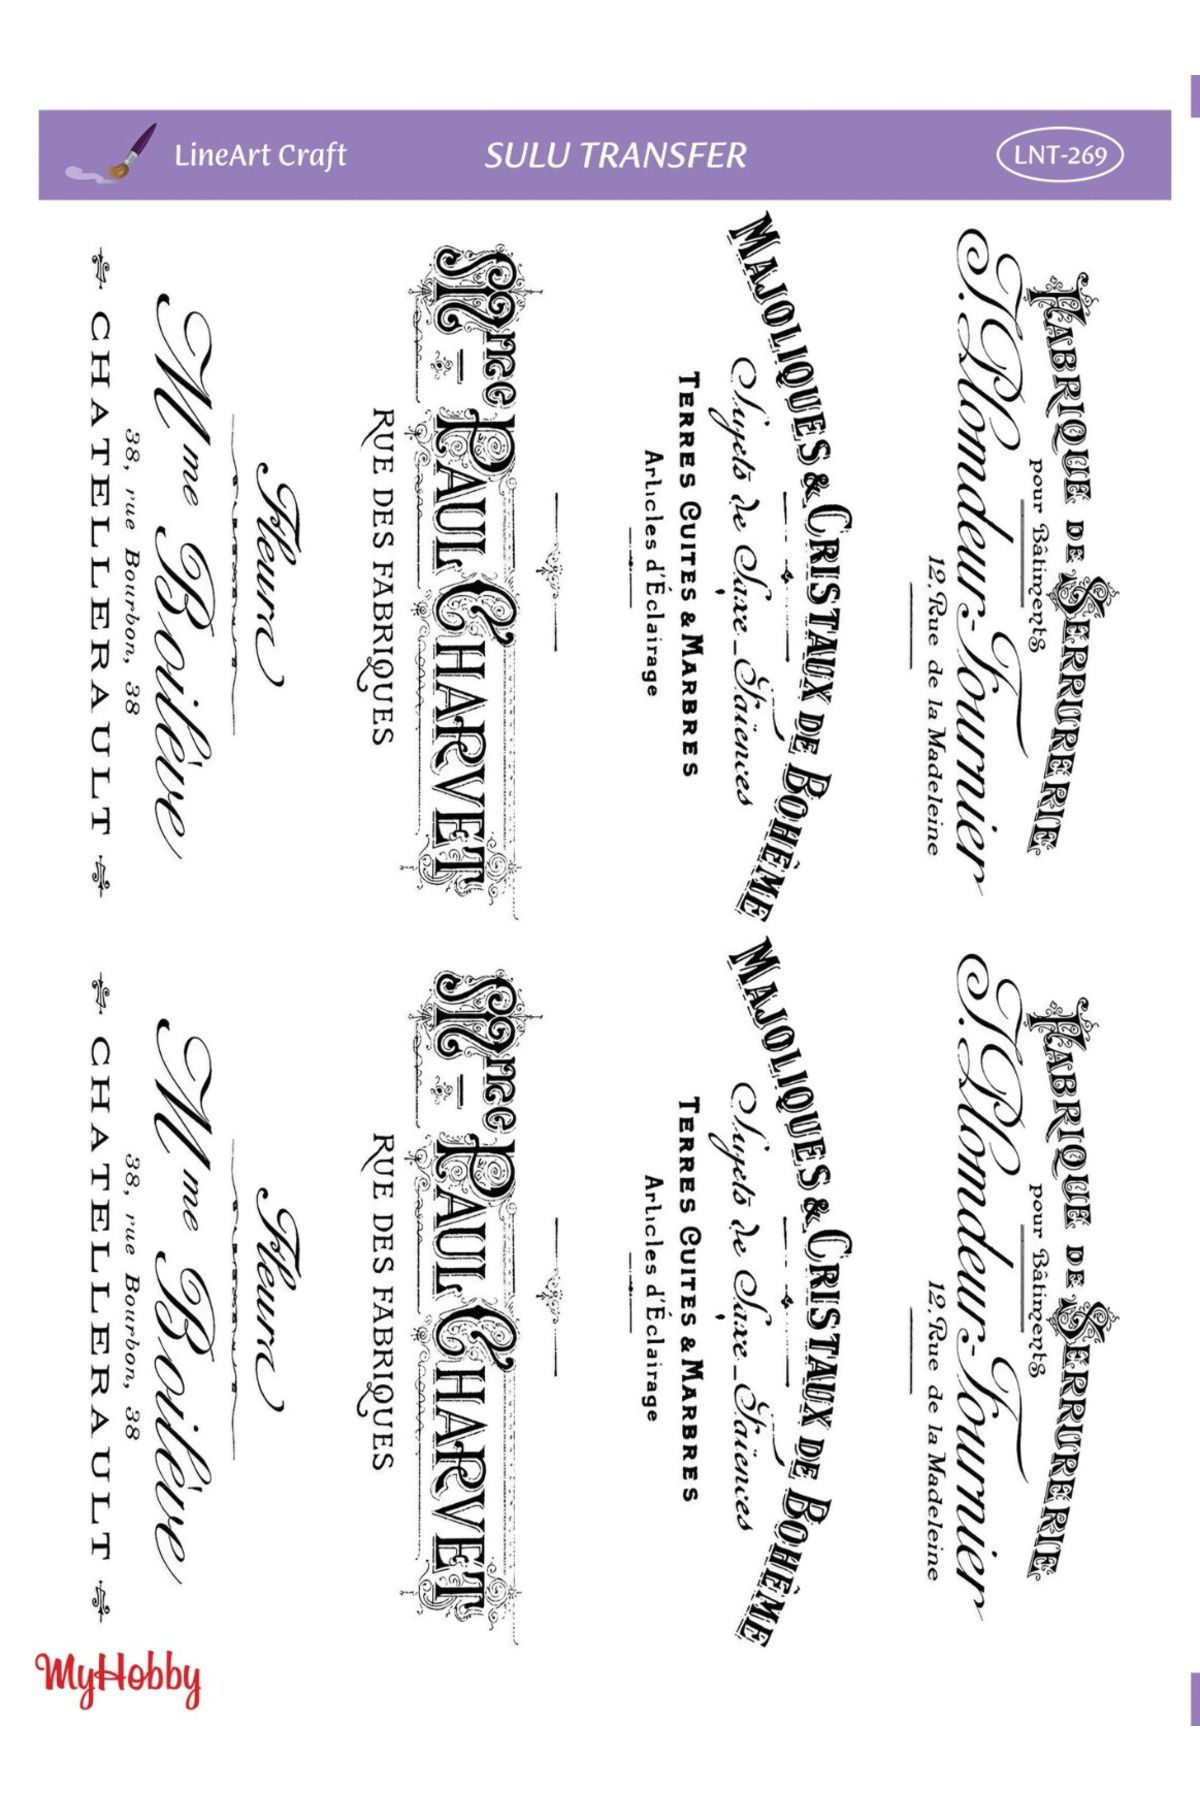 LineArt Craft
SULU TRANSFER
LNT-269
FABRIQUE DE SERRURERIE
pour Bâtiments
J. Plomdeur-Tournier
12, Rue de la Madeleine
MAJOLIQUES & CRISTAUX DE BOHÊME
Sujets de Saxe_Faïences
TERRES CUITES & MARBRES
Articles d'Éclairage
Mce
PAUL CHARVET
RUE DES FABRIQUES
Fleurs
Mme Boilève
38, rue Bourbon, 38
CHATELLERAULT
FABRIQUE DE SERRURERIE
pour Bâtiments
J. Plomdeur-Tournier
12, Rue de la Madeleine
MAJOLIQUES & CRISTAUX DE BOHÊME
Sujets de Saxe_Faïences
TERRES CUITES & MARBRES
Articles d'Éclairage
Mce
PAUL CHARVET
RUE DES FABRIQUES
Fleurs
Mme Boilève
38, rue Bourbon, 38
CHATELLERAULT
MyHobby